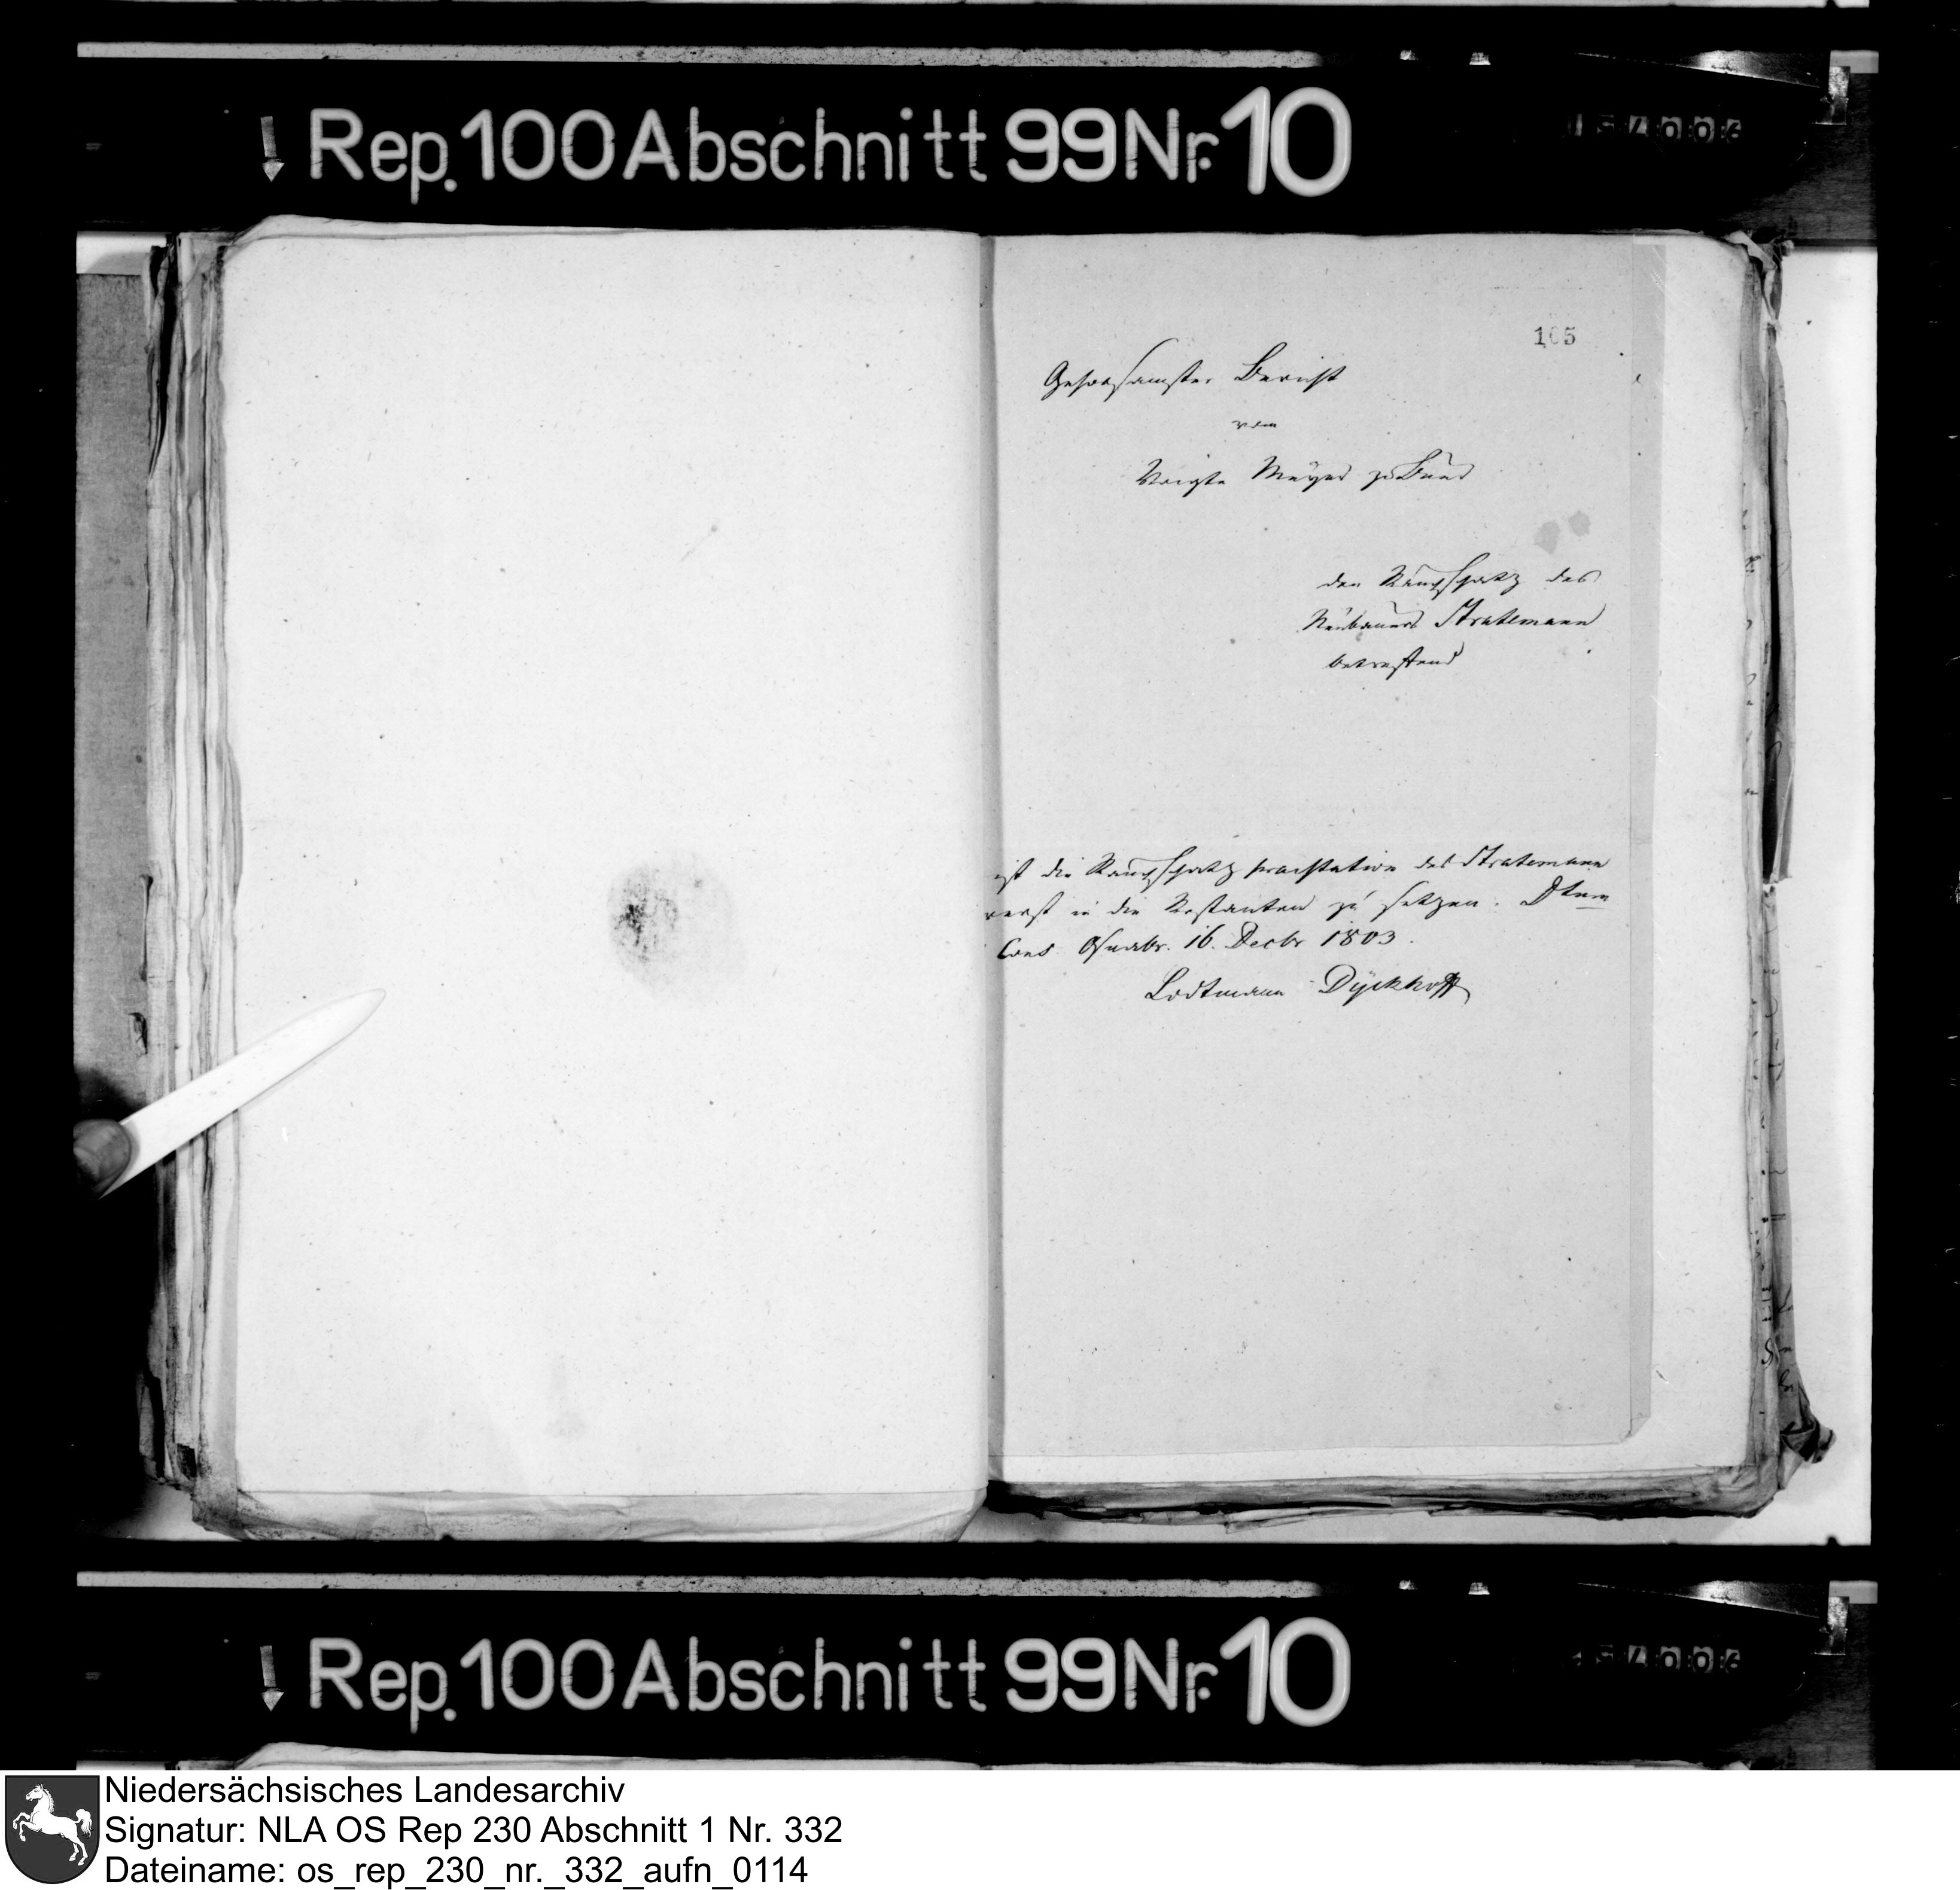 Rep. 100 Abschnitt 99 Nr. 10
165
Gehorsamster Bericht
vom
Voigte Meyer zu Buer
den Rauchschatz des
Neubauers Stratemann
betreffend
ist die Rauchschatz praestation des Stratemann
in die Restanten zu setzen. Dtum
Cons Osnabr. 16. Decbr 1803.
Lodtmann Dyckhoff
Rep. 100 Abschnitt 99 Nr. 10
Niedersächsisches Landesarchiv
Signatur: NLA OS Rep 230 Abschnitt 1 Nr. 332
Dateiname: os_rep_230_nr._332_aufn_0114